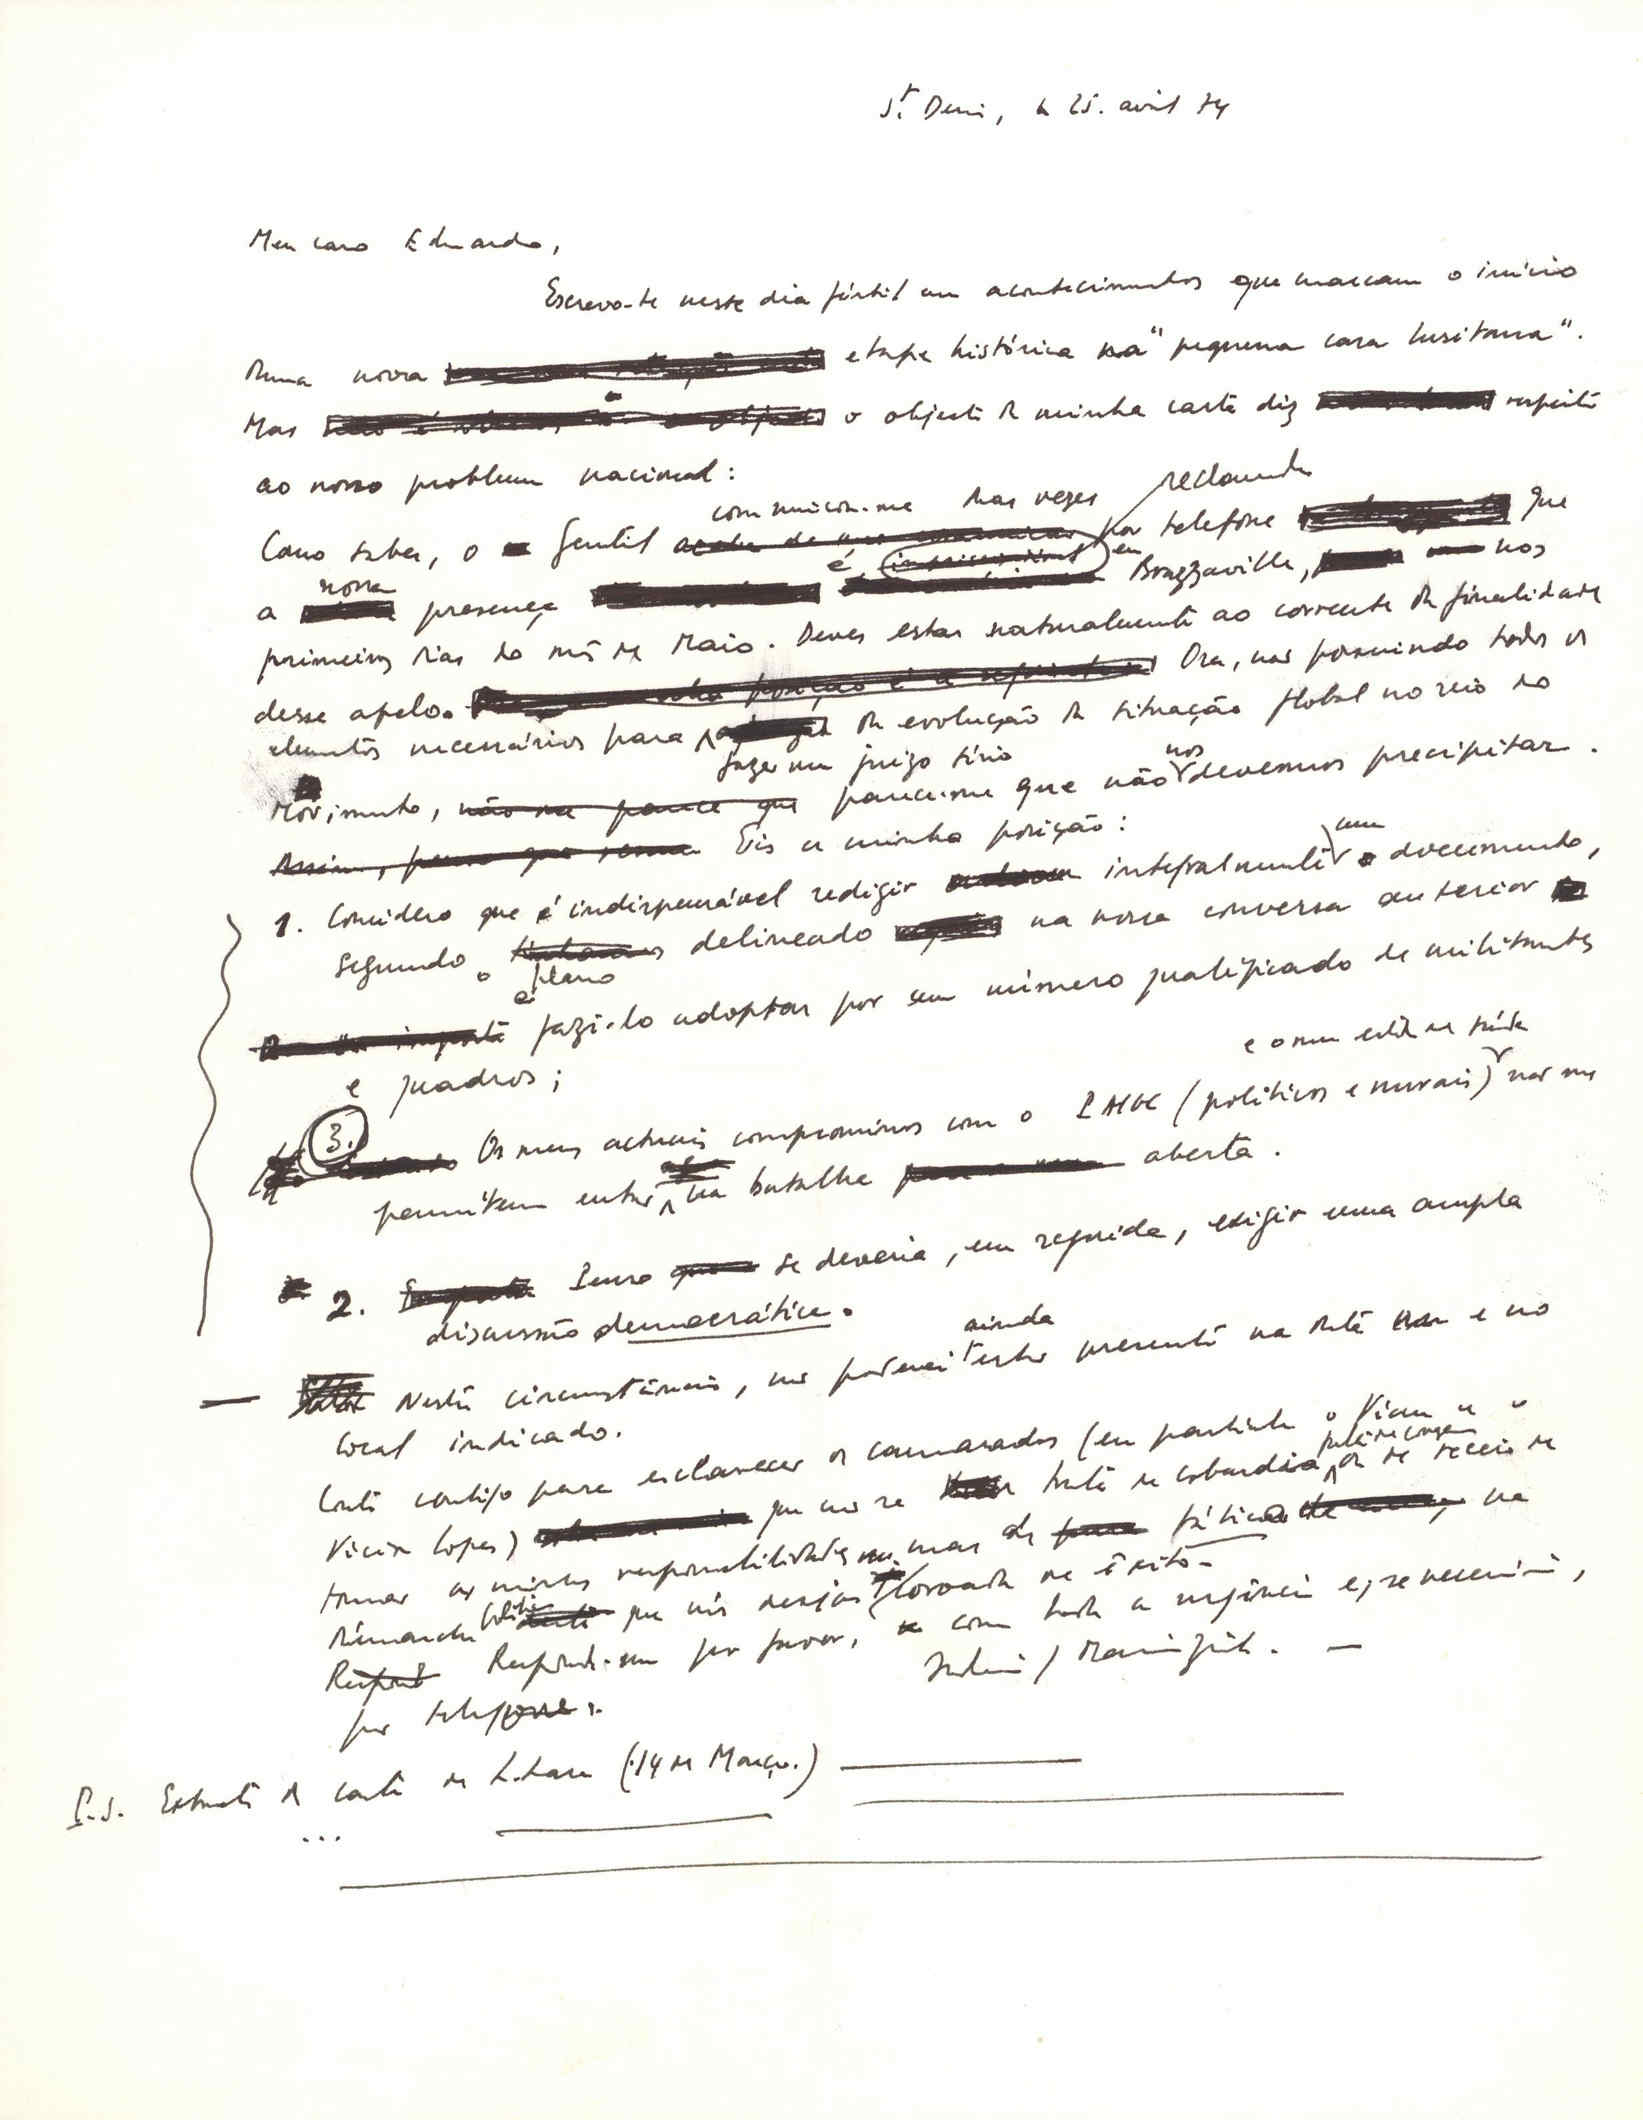 St Denis, le 25. avril 74
Meu caro Eduardo,
Escrevo-te neste dia fértil em acontecimentos que marcam o início
duma nova etapa histórica na "pequena casa lusitana".
Mas o objecto da minha carta diz respeito
ao nosso problema nacional:
comunicou-me duas vezes reclamando
Como sabes, o Gentil por telefone que
a nossa presença é em Brazzaville, nos
primeiros dias do mês de Maio. Deves estar naturalmente ao corrente da finalidade
desse apelo. Ora, não possuindo todos os
elementos necessários para da evolução da situação global no seio do
fazer um juízo sério
Movimento, não me parece que parece-me que não nos devemos precipitar.
Eis a minha posição:
1. Considero que é indispensável redigir integralmente um documento,
segundo o delineado na nossa conversa anterior
plano
e fazê-lo adoptar por um número qualificado de militantes
e quadros;
e o meu estado de saúde
3. Os meus actuais compromissos com o PAIGC (políticos e morais) não me
permitem entrar na batalha aberta.
2. Penso que se deveria, em seguida, exigir uma ampla
discussão democrática.
ainda
— Nestas circunstâncias, não poderei estar presente na data e no
local indicado.
Conto contigo para esclarecer os camaradas (em particular o Viana e o
Vieira Lopes) que não se trata de cobardia ou de receio de
tomar as minhas responsabilidades mas de táctica na
démarche que nós desejamos coroada de êxito.
Responde-me por favor, com toda a urgência e, se necessário,
por telefone.
P.S. Extracto da carta de L. Lara (14 de Março.)
...